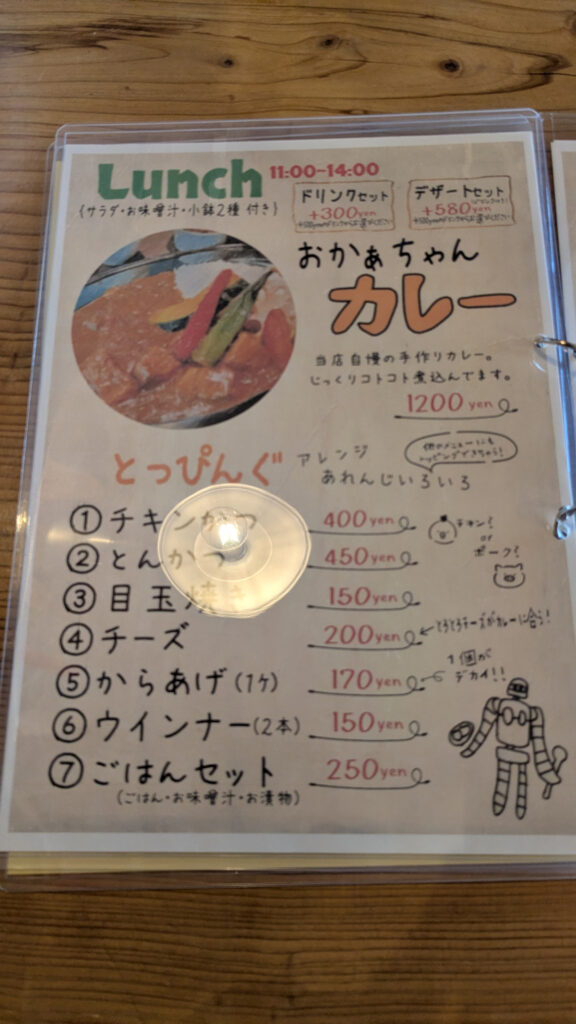 Lunch 11:00-14:00
(サラダ・お味噌汁・小鉢2種 付き)
ドリンクセット
+300yen
デザートセット
+580yen
おかぁちゃん
カレー
当店自慢の手作りカレー。
じっくりコトコト煮込んでます。
1200 yen
とっぴんぐ アレンジ
あれんじいろいろ
他のメニューにも
トッピングできちゃう!
① チキンかつ 400yen
チキン! or ポーク!
② とんかつ 450yen
③ 目玉焼き 150yen
④ チーズ 200yen ←とろとろチーズがカレーに合う!
⑤ からあげ(1ケ) 170yen 1個がデカイ!!
⑥ ウインナー(2本) 150yen
⑦ ごはんセット 250yen
(ごはん・お味噌汁・お漬物)